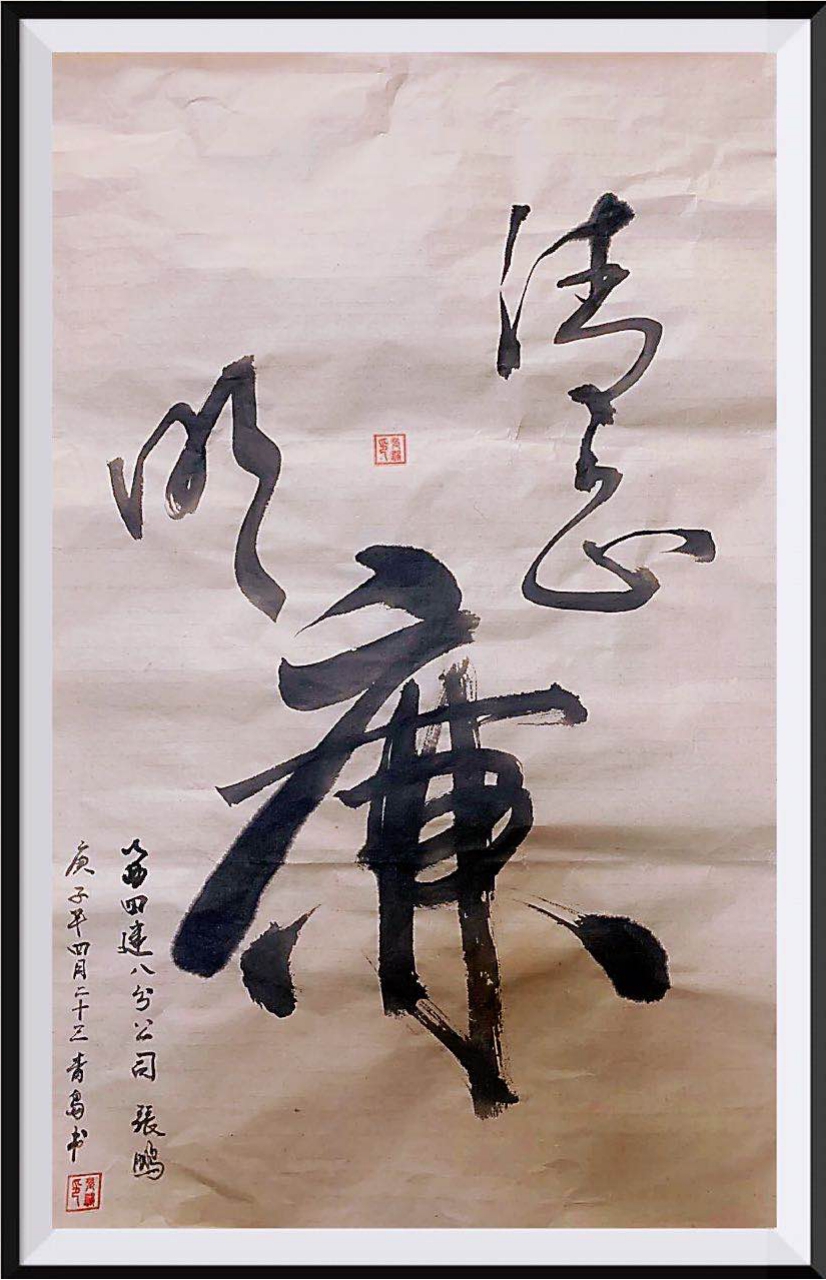 清正
廉
明
山西四建八分公司 張鵬
庚子年四月二十三青島书